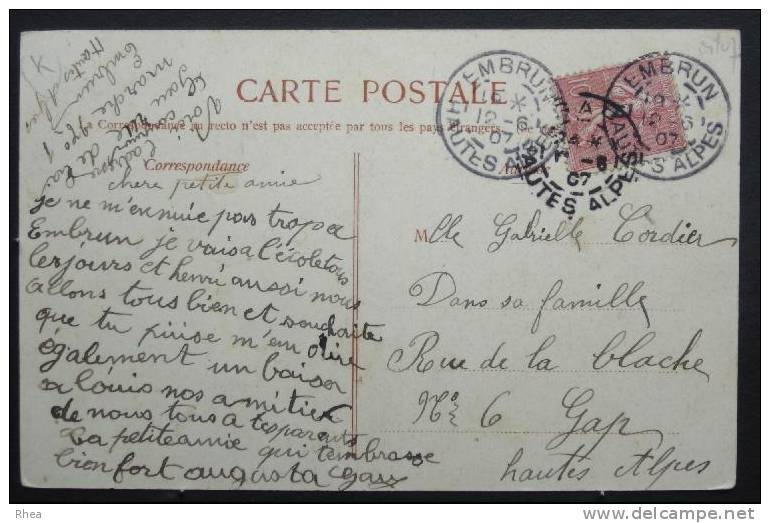 CARTE POSTALE
La Correspondance au recto n'est pas acceptée par tous les pays étrangers.
Correspondance
EMBRUN
12-6
07
HAUTES ALPES
EMBRUN
12-6
07
HAUTES ALPES
-6
07
HAUTES ALPES
Voici
marche
Embrun
Hautes Alpes
chere petite amie
je ne m'ennuie pas trop a
Embrun je vais a l'école tous
les jours et henri aussi nous
allons tous bien et souhaite
que tu puise m'en dire
également un baiser
a louis nos amitier
de nous tous a tes parents
ta petite amie qui t'embrasse
bien fort augusta
Mlle Gabrielle Cordier
Dans sa famille
Rue de la blache
No 6 Gap
hautes Alpes
Rhea
www.delcampe.net